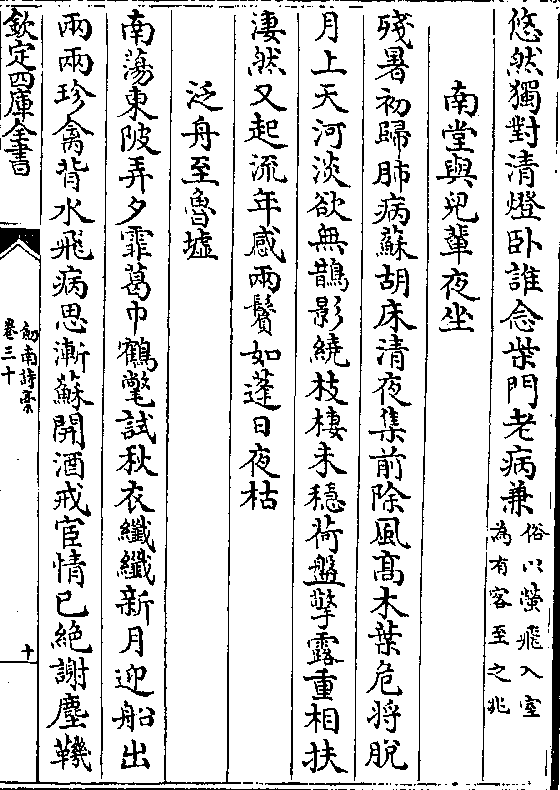 悠然獨對清燈卧誰念柴門老病兼俗以螢飛入室為有客至之兆
南堂與兒輩夜坐
殘暑初歸肺病蘇胡床清夜集前除風髙木葉危將脫
月上天河淡欲無鵲影繞枝棲未穩荷盤擎露重相扶
淒然又起流年感兩鬢如蓬日夜枯
泛舟至魯墟
南蕩東陂弄夕霏葛巾鶴氅試秋衣纖纖新月迎船出
兩兩珍禽背水飛病思漸蘇開酒戒宦情已絶謝塵鞿
欽定四庫全書
劒南詩稾
卷三十
十